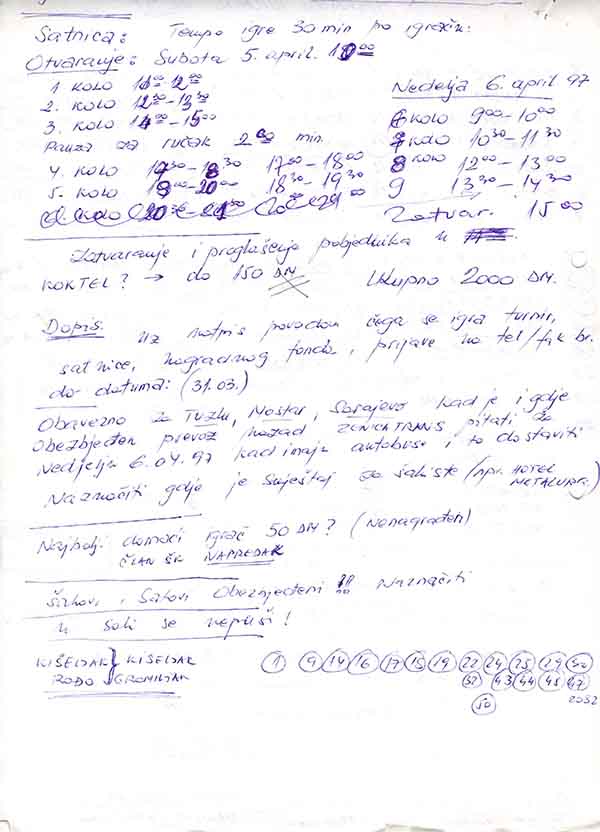 Satnica: Tempo igre 30 min po igraču.
Otvaranje: Subota 5. april. 10⁰⁰
1 KOLO 11⁰⁰-12⁰⁰
Nedelja 6. april 97
2. KOLO 12³⁰-13³⁰
6 KOLO 9⁰⁰-10⁰⁰
3. KOLO 14⁰⁰-15⁰⁰
7 KOLO 10³⁰-11³⁰
Pauza za ručak 2⁰⁰ min.
8 KOLO 12⁰⁰-13⁰⁰
4. KOLO 17³⁰-18³⁰ 17⁰⁰-18⁰⁰
9 13³⁰-14³⁰
5. KOLO 19⁰⁰-20⁰⁰ 18³⁰-19³⁰
Zatvar. 15⁰⁰
KOLO 20³⁰
Zatvaranje i proglašenje pobjednika u
KOKTEL? → do 150 DM Ukupno 2000 DM.
Dopis: uz natpis povodom čega se igra turnir,
satnice, nagradnog fonda, prijave na tel/fax br.
do datuma: (31.03.)
Obavezno za Tuzlu, Mostar, Sarajevo kad je i gdje
obezbjeđen prevoz nazad ZENICATRANS pitati za
Nedjelju 6.04.97 kad imaju autobuse i to dostaviti
Naznačiti gdje je smještaj za šahiste (npr. HOTEL
METALURG.)
Najbolji domaći igrač 50 DM? (Nenagrađen)
ČLAN ŠK NAPREDAK
Šahovi i Satovi Obezbjeđeni !! Naznačiti
U sali se nepuši!
KIŠELJAK KIŠELJAK
ROĐO GROMILJAK
1 9 14 16 17 15 19 22 24 25 29 30
32 43 44 45 47
50 2032